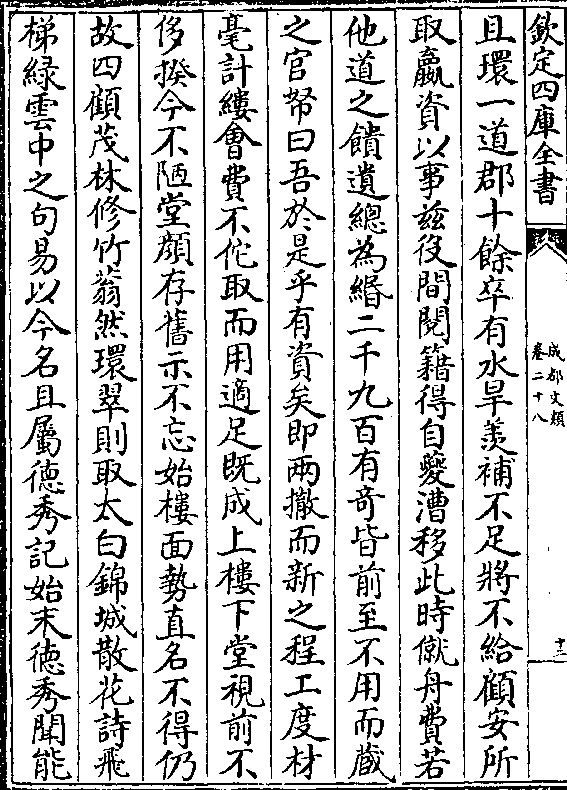 欽定四庫全書
成都文類
卷二十八
十三
且環一道郡十餘卒有水旱羨補不足將不給顧安所
取贏資以事兹役間閱籍得自夔漕移此時僦舟費若
他道之饋遺總為緡二千九百有奇皆前至不用而藏
之官帑曰吾於是乎有資矣即兩撤而新之程工度材
毫計縷會費不佗取而用適足既成上樓下堂視前不
侈揆今不陋堂顔存舊示不忘始樓面勢直名不得仍
故四顧茂林修竹蓊然環翠則取太白錦城散花詩飛
梯緑雲中之句易以今名且屬德秀記始末德秀聞能